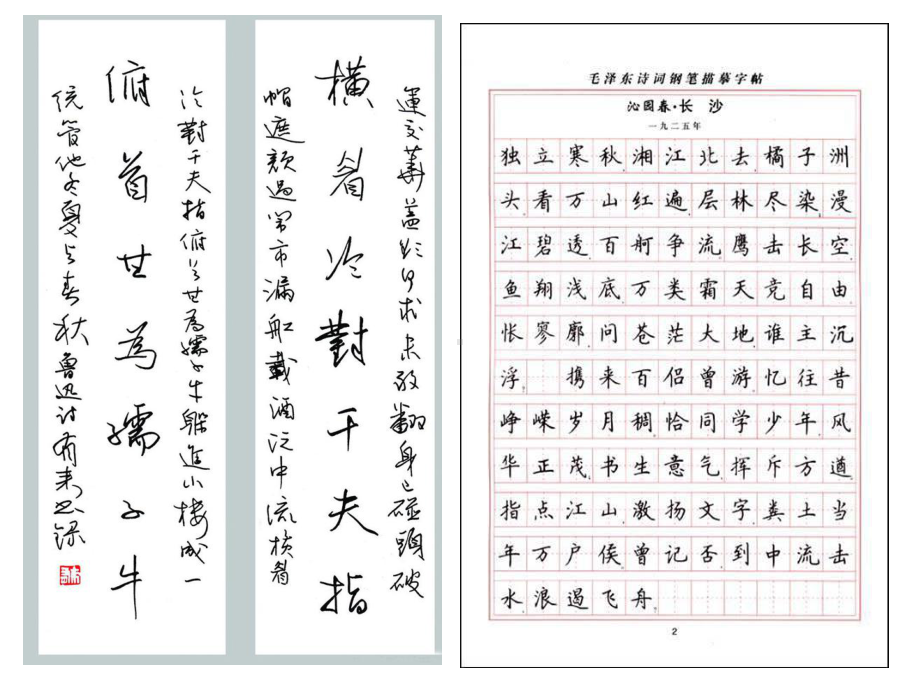 運交華蓋欲何求未敢翻身已碰頭破
橫眉冷對千夫指
帽遮顏過鬧市漏船載酒泛中流橫眉
冷對千夫指俯首甘為孺子牛躲進小樓成一
俯首甘為孺子牛
統管他冬夏与春秋 魯迅詩有
毛泽东诗词钢笔描摹字帖
沁园春·长 沙
一九二五年
独立寒秋湘江北去橘子洲
头看万山红遍层林尽染漫
江碧透百舸争流鹰击长空
鱼翔浅底万类霜天竞自由
怅寥廓问苍茫大地谁主沉
浮 携来百侣曾游忆往昔
峥嵘岁月稠恰同学少年风
华正茂书生意气挥斥方遒
指点江山激扬文字粪土当
年万户侯曾记否到中流击
水浪遏飞舟
2